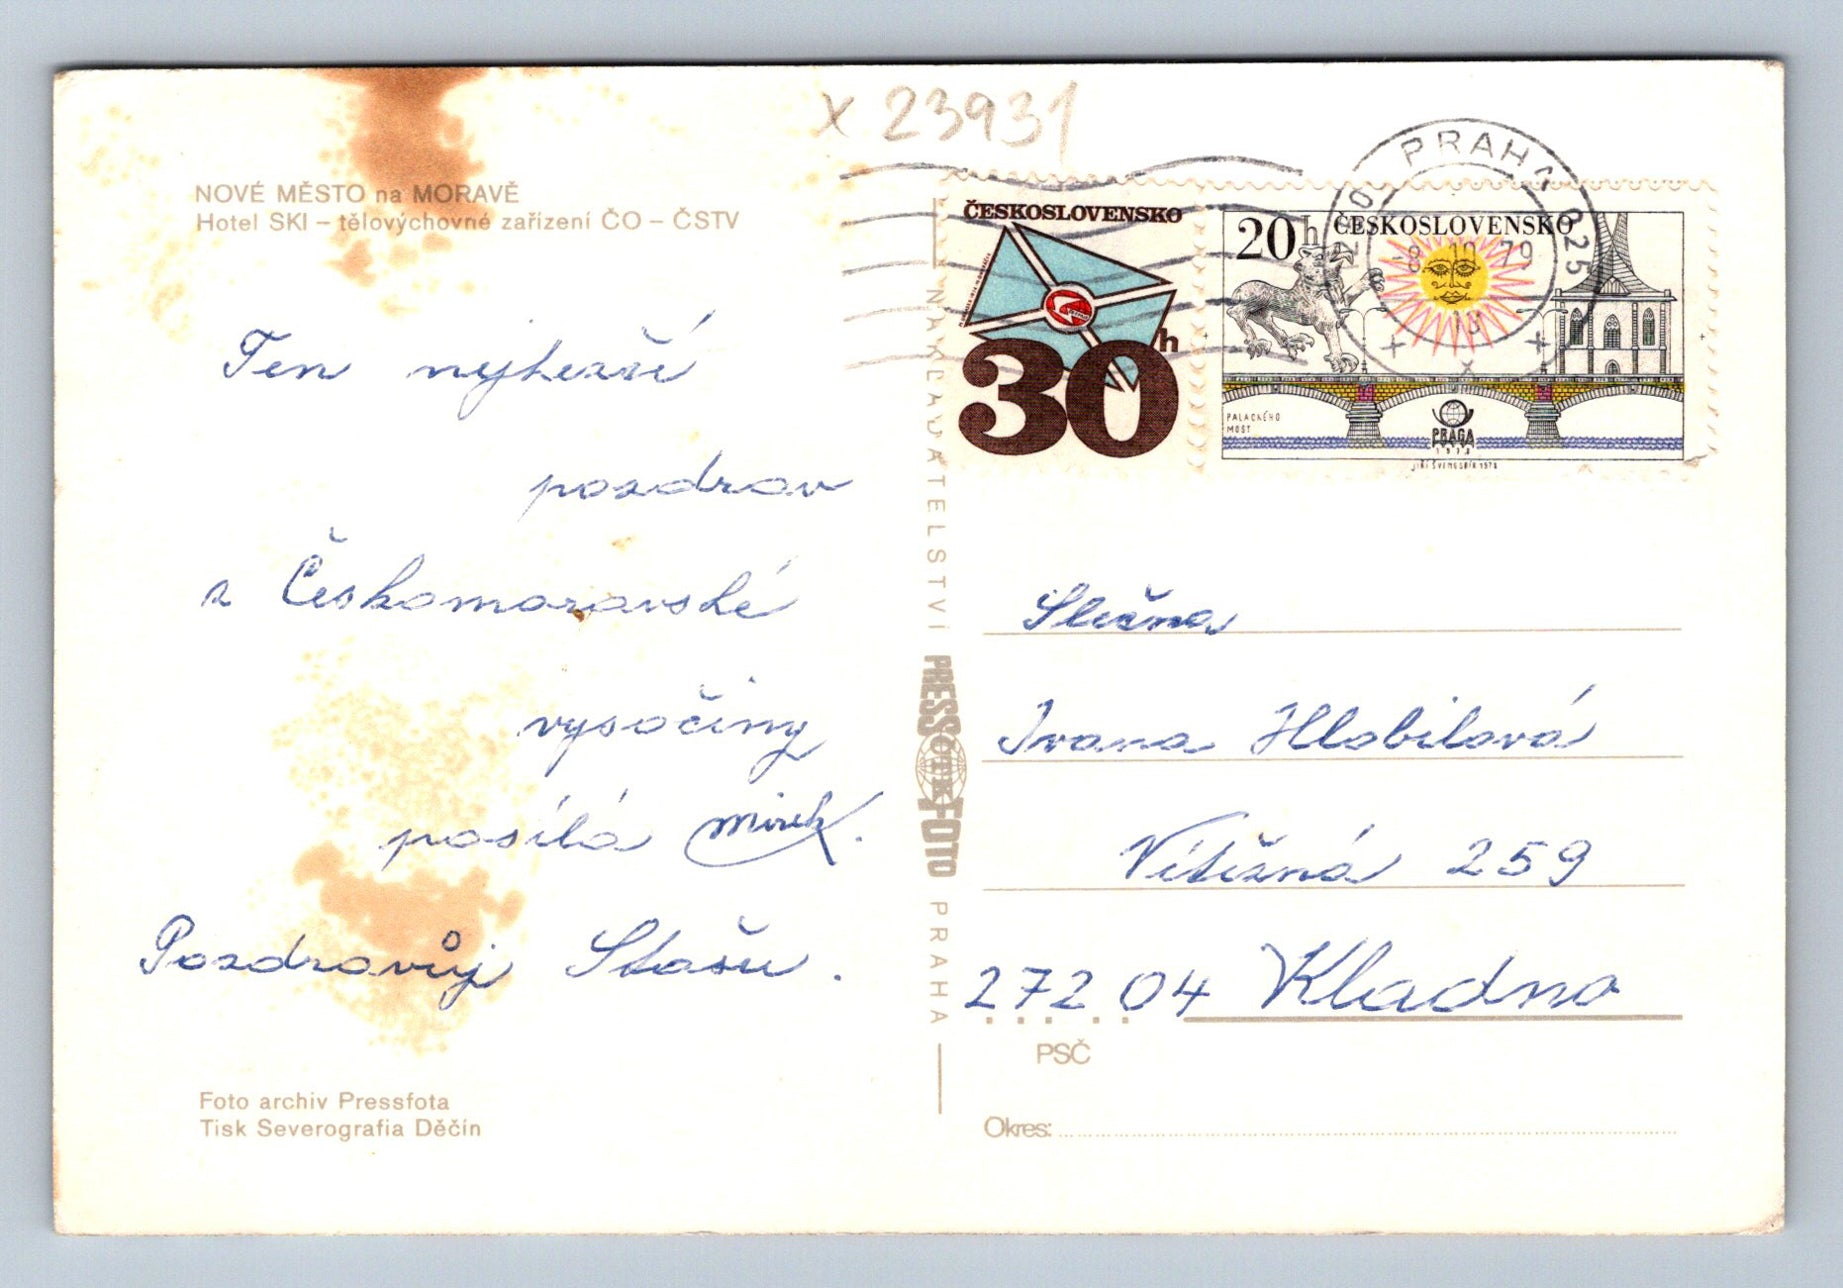 x 23931
NOVÉ MĚSTO na MORAVĚ
Hotel SKI – tělovýchovné zařízení ČO – ČSTV
Ten nejhezší
pozdrav
z Českomoravské
vysočiny
posílá Mirek.
Pozdravůj Stašu.
Foto archiv Pressfota
Tisk Severografia Děčín
NAKLADATELSTVÍ PRESSFOTO PRAHA
ČTK
ČESKOSLOVENSKO
30h
20h ČESKOSLOVENSKO
PALACKÉHO
MOST
PRAGA
1978
JIŘÍ ŠVENGSBÍR 1978
PRAHA 025
-8.10.79
Slečna
Ivana Hlobilová
Vítězná 259
272 04 Kladno
PSČ
Okres: